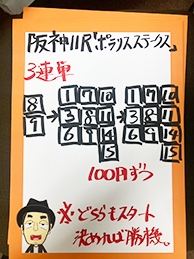 阪神11R「ポラリスステークス」
3連単
1 7 10 1 7 10
8 → 3 8 11 → 3 8 11
7 6 9 14 6 9 14
15 15
100円ずつ
※どちらもスタート
決めれば勝機。